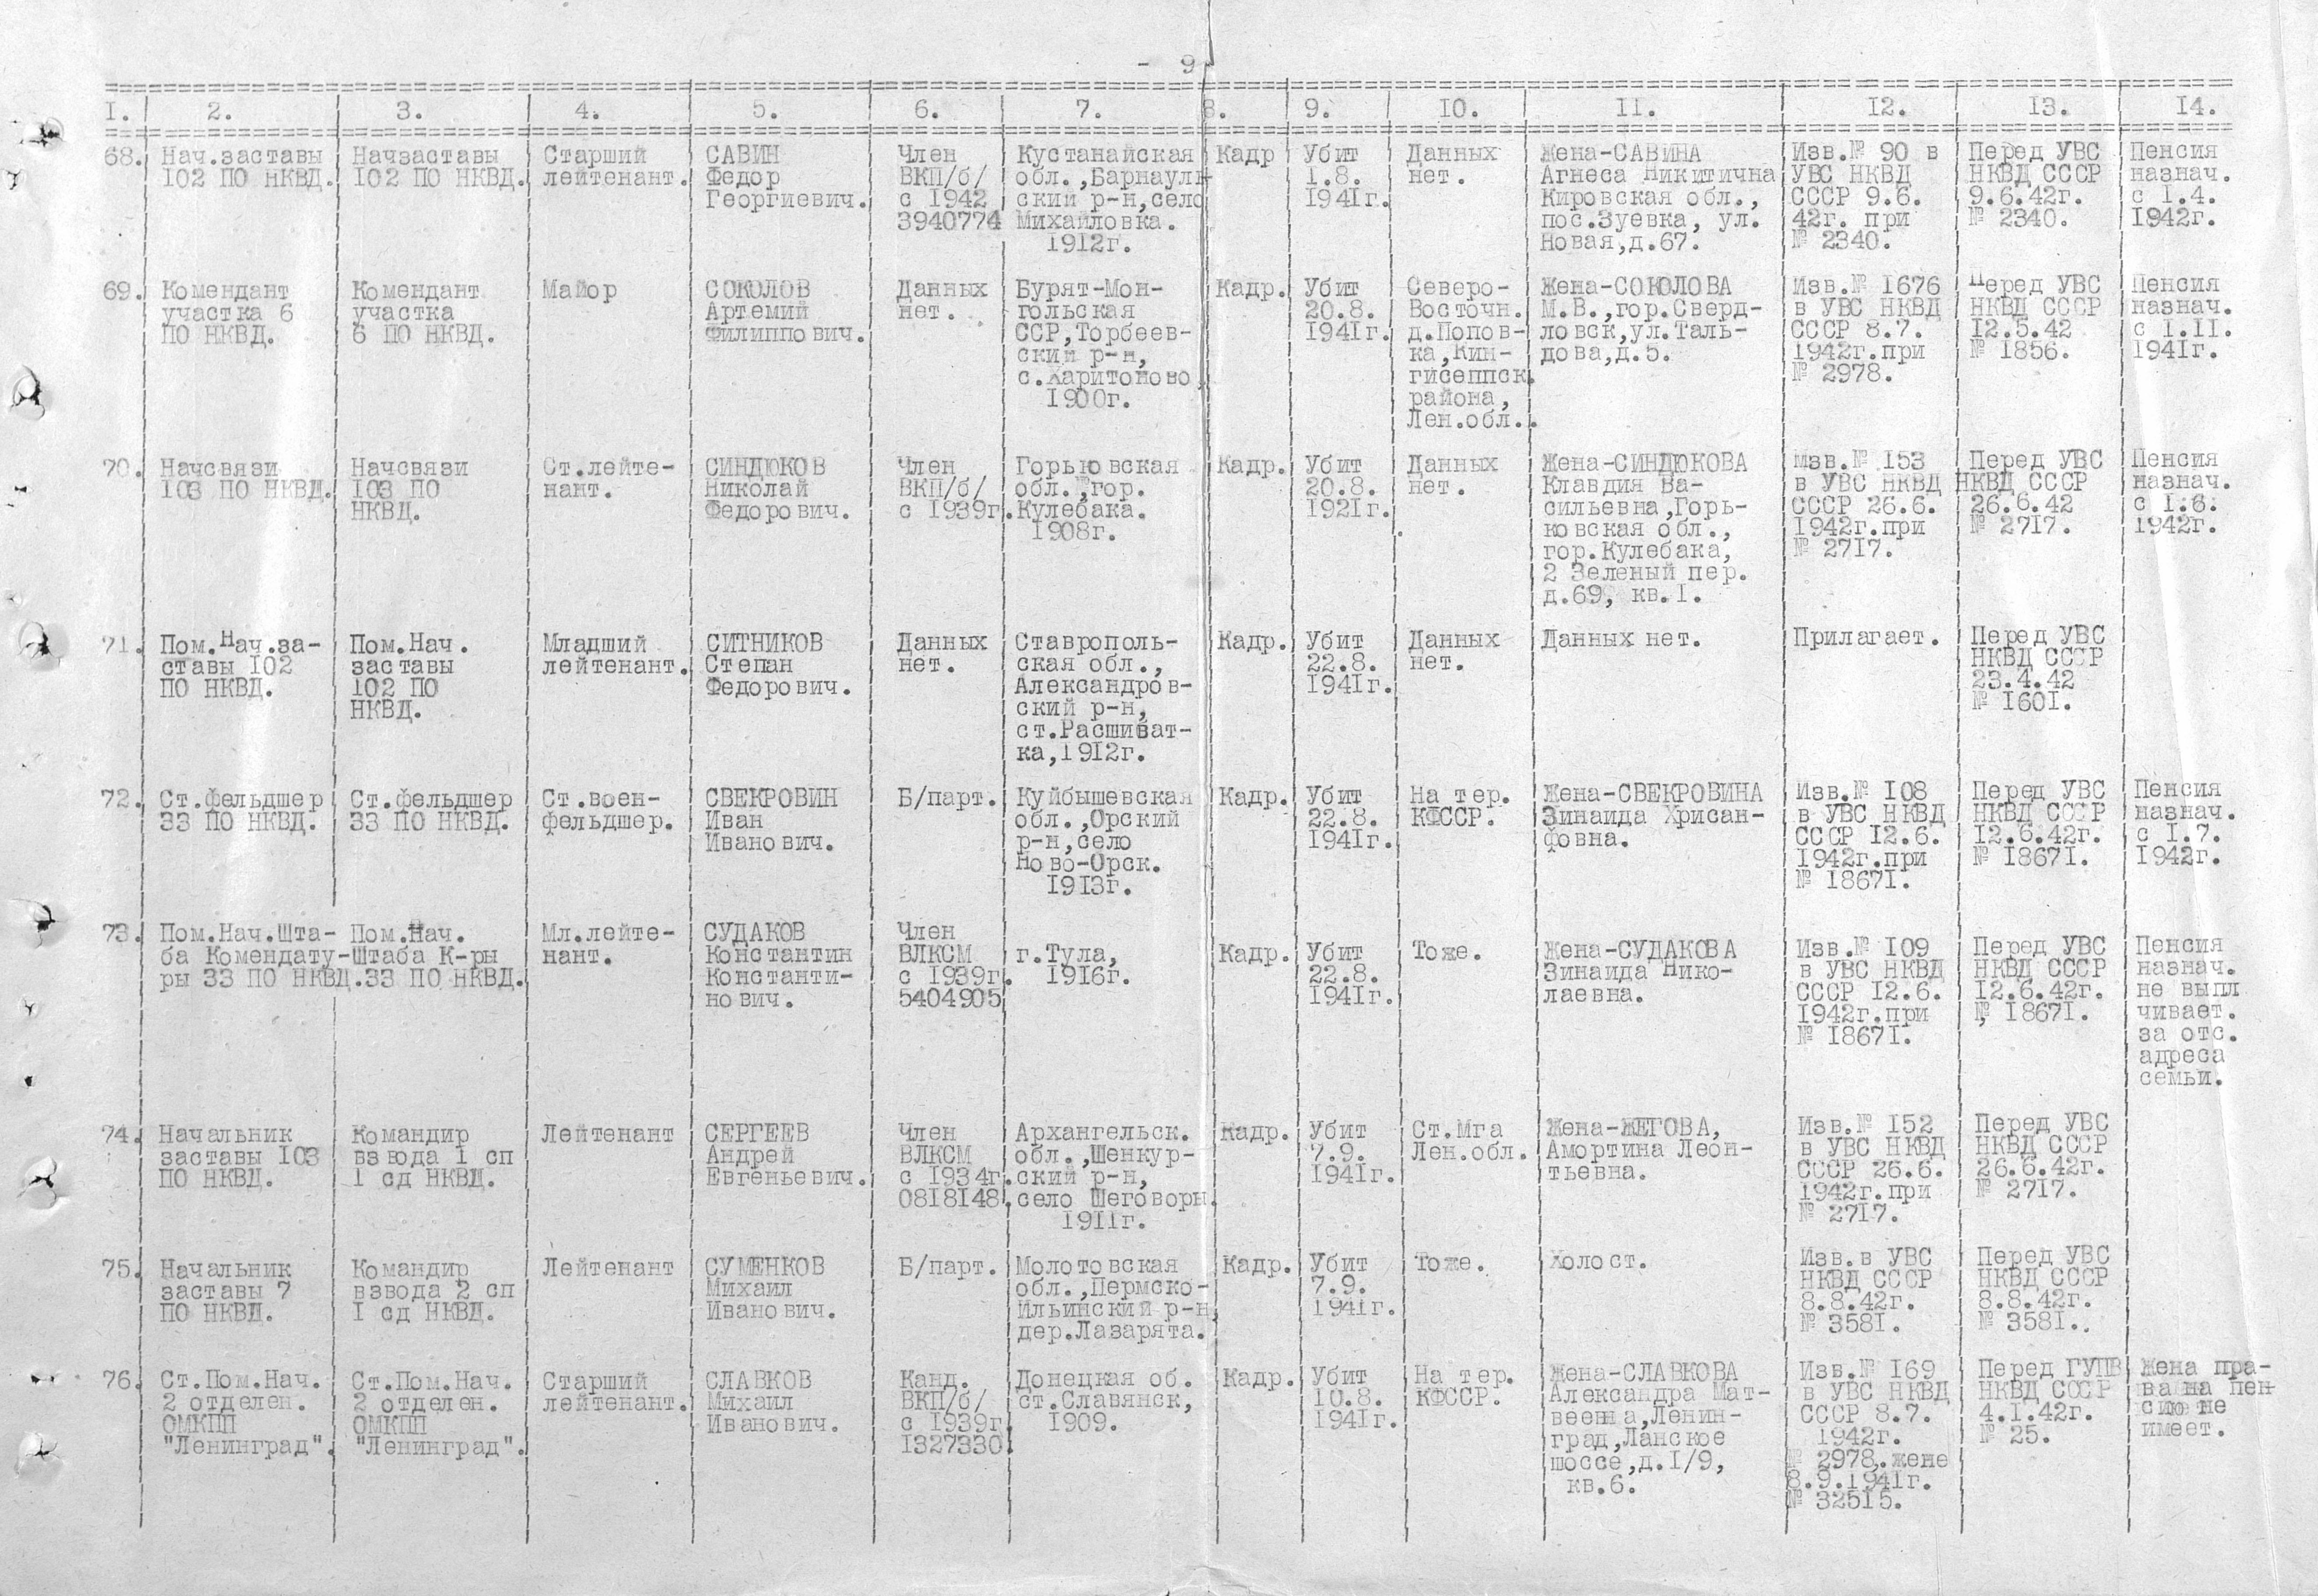 - 9
I. 2. 3. 4. 5. 6. 7. 8. 9. IO. II. I2. I3. I4.
68. Нач.заставы
IO2 ПО НКВД.
Начзаставы
IO2 ПО НКВД.
Старший
лейтенант.
САВИН
Федор
Георгиевич.
Член
ВКП/б/
с 1942
3940774
Кустанайская
обл.,Барнауль
ский р-н,село
Михайловка.
1912г.
Кадр
Убит
1.8.
194Iг.
Данных
нет.
Жена-САВИНА
Агнеса Никитична
Кировская обл.,
пос.Зуевка, ул.
Новая,д.67.
Изв.№ 90 в
УВС НКВД
СССР 9.6.
42г. при
№ 2340.
Перед УВС
НКВД СССР
9.6.42г.
№ 2340.
Пенсия
назнач.
с I.4.
1942г.
69. Комендант
участка 6
ПО НКВД.
Комендант
участка
6 ПО НКВД.
Майор
СОКОЛОВ
Артемий
Филиппович.
Данных
нет.
Бурят-Мон-
гольская
ССР,Торбеев-
ский р-н,
с.Харитоново,
I900г.
Кадр.
Убит
20.8.
194Iг.
Северо-
Восточн.
д.Попов-
ка,Кин-
гисеппск.
района,
Лен.обл..
Жена-СОКОЛОВА
М.В.,гор.Сверд-
ловск,ул.Таль-
дова,д.5.
Изв.№ I676
в УВС НКВД
СССР 8.7.
1942г.при
№ 2978.
Перед УВС
НКВД СССР
I2.5.42
№ 1856.
Пенсия
назнач.
с I.II.
194Iг.
70. Начсвязи
I03 ПО НКВД.
Начсвязи
I03 ПО
НКВД.
Ст.лейте-
нант.
СИНДЮКОВ
Николай
Федорович.
Член
ВКП/б/
с 1939г.
Горьковская
обл.,гор.
Кулебака.
1908г.
Кадр.
Убит
20.8.
192Iг.
Данных
нет.
Жена-СИНДЮКОВА
Клавдия Ва-
сильевна,Горь-
ковская обл.,
гор.Кулебака,
2 Зеленый пер.
д.69, кв.I.
Изв.№ I53
в УВС НКВД
СССР 26.6.
1942г.при
№ 27I7.
Перед УВС
НКВД СССР
26.6.42
№ 27I7.
Пенсия
назнач.
с I.6.
1942г.
71. Пом.Нач.за-
ставы IO2
ПО НКВД.
Пом.Нач.
заставы
IO2 ПО
НКВД.
Младший
лейтенант.
СИТНИКОВ
Степан
Федорович.
Данных
нет.
Ставрополь-
ская обл.,
Александров-
ский р-н,
ст.Расшиват-
ка,1912г.
Кадр.
Убит
22.8.
194Iг.
Данных
нет.
Данных нет.
Прилагает.
Перед УВС
НКВД СССР
23.4.42
№ I60I.
72. Ст.фельдшер
33 ПО НКВД.
Ст.фельдшер
33 ПО НКВД.
Ст.воен-
фельдшер.
СВЕКРОВИН
Иван
Иванович.
Б/парт.
Куйбышевская
обл.,Орский
р-н,село
Ново-Орск.
1913г.
Кадр.
Убит
22.8.
194Iг.
На тер.
КФССР.
Жена-СВЕКРОВИНА
Зинаида Хрисан-
фовна.
Изв.№ I08
в УВС НКВД
СССР I2.6.
1942г.при
№ I867I.
Перед УВС
НКВД СССР
I2.6.42г.
№ I867I.
Пенсия
назнач.
с I.7.
1942г.
73. Пом.Нач.Шта-
ба Комендату-
ры 33 ПО НКВД.
Пом.Нач.
Штаба К-ры
33 ПО НКВД.
Мл.лейте-
нант.
СУДАКОВ
Константин
Константи-
нович.
Член
ВЛКСМ
с 1939г.
5404905
г.Тула,
1916г.
Кадр.
Убит
22.8.
194Iг.
Тоже.
Жена-СУДАКОВА
Зинаида Нико-
лаевна.
Изв.№ I09
в УВС НКВД
СССР I2.6.
1942г.при
№ I867I.
Перед УВС
НКВД СССР
I2.6.42г.
№ I867I.
Пенсия
назнач.
не выпл
чивает.
за отс.
адреса
семьи.
74. Начальник
заставы I03
ПО НКВД.
Командир
взвода 1 сп
1 сд НКВД.
Лейтенант
СЕРГЕЕВ
Андрей
Евгеньевич.
Член
ВЛКСМ
с 1934г.
0818148.
Архангельск.
обл.,Шенкур-
ский р-н,
село Шеговоры.
1911г.
Кадр.
Убит
7.9.
194Iг.
Ст.Мга
Лен.обл.
Жена-ЖЕГОВА,
Амортина Леон-
тьевна.
Изв.№ I52
в УВС НКВД
СССР 26.6.
1942г.при
№ 27I7.
Перед УВС
НКВД СССР
26.6.42г.
№ 27I7.
75. Начальник
заставы 7
ПО НКВД.
Командир
взвода 2 сп
I сд НКВД.
Лейтенант
СУМЕНКОВ
Михаил
Иванович.
Б/парт.
Молотовская
обл.,Пермско-
Ильинский р-н,
дер.Лазарята.
Кадр.
Убит
7.9.
194Iг.
Тоже.
Холост.
Изв.в УВС
НКВД СССР
8.8.42г.
№ 358I.
Перед УВС
НКВД СССР
8.8.42г.
№ 358I..
76. Ст.Пом.Нач.
2 отделен.
ОМКПП
"Ленинград".
Ст.Пом.Нач.
2 отделен.
ОМКПП
"Ленинград".
Старший
лейтенант.
СЛАВКОВ
Михаил
Иванович.
Канд.
ВКП/б/
с 1939г.
I327330.
Донецкая об.
ст.Славянск,
1909.
Кадр.
Убит
I0.8.
194Iг.
На тер.
КФССР.
Жена-СЛАВКОВА
Александра Мат-
веевна,Ленин-
град,Ланское
шоссе,д.I/9,
кв.6.
Изв.№ I69
в УВС НКВД
СССР 8.7.
1942г.
№ 2978.жене
8.9.194Iг.
№ 325I5.
Перед ГУПВ
НКВД СССР
4.I.42г.
№ 25.
Жена пра-
ва на пен-
сию не
имеет.